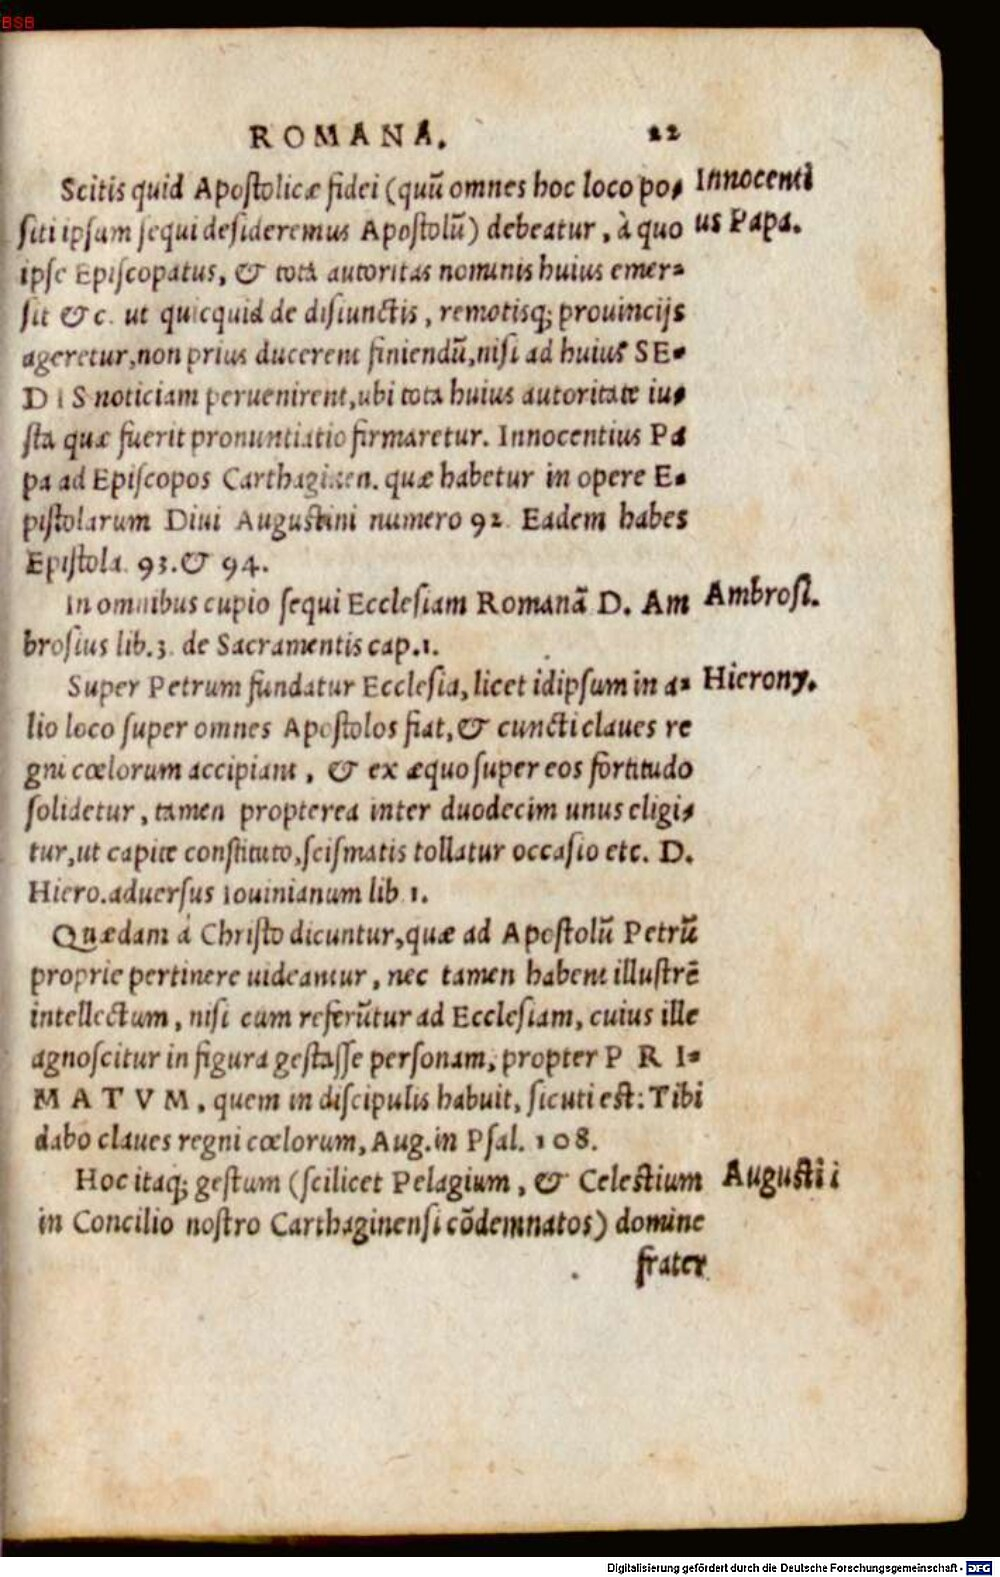 BSB
ROMANA. 22
Scitis quid Apostolicæ fidei (quũ omnes hoc loco po- Innocenti
siti ipsum sequi desideremus Apostolũ) debeatur, à quo us Papa.
ipse Episcopatus, & tota autoritas nominis huius emer-
sit &c. ut quicquid de disiunctis, remotisq; prouincijs
ageretur, non prius ducerent finiendũ, nisi ad huius SE-
DIS noticiam peruenirent, ubi tota huius autoritate iu-
sta quæ fuerit pronuntiatio firmaretur. Innocentius Pa
pa ad Episcopos Carthaginen. quæ habetur in opere E-
pistolarum Diui Augustini numero 92. Eadem habes
Epistola 93. & 94.
In omnibus cupio sequi Ecclesiam Romanã D. Am Ambros.
brosius lib. 3. de Sacramentis cap. 1.
Super Petrum fundatur Ecclesia, licet idipsum in a- Hierony.
lio loco super omnes Apostolos fiat, & cuncti claues re
gni cœlorum accipiant, & ex æquo super eos fortitudo
solidetur, tamen propterea inter duodecim unus eligi-
tur, ut capite constituto, scismatis tollatur occasio etc. D.
Hiero. aduersus Iouinianum lib 1.
Quædam á Christo dicuntur, quæ ad Apostolũ Petrũ
proprie pertinere uideantur, nec tamen habent illustrẽ
intellectum, nisi cum referũtur ad Ecclesiam, cuius ille
agnoscitur in figura gestasse personam, propter P R I-
M A T V M, quem in discipulis habuit, sicuti est: Tibi
dabo claues regni cœlorum, Aug. in Psal. 108.
Hoc itaq; gestum (scilicet Pelagium, & Celestium Augusti i
in Concilio nostro Carthaginensi cõdemnatos) domine
frater
Digitalisierung gefördert durch die Deutsche Forschungsgemeinschaft - DFG